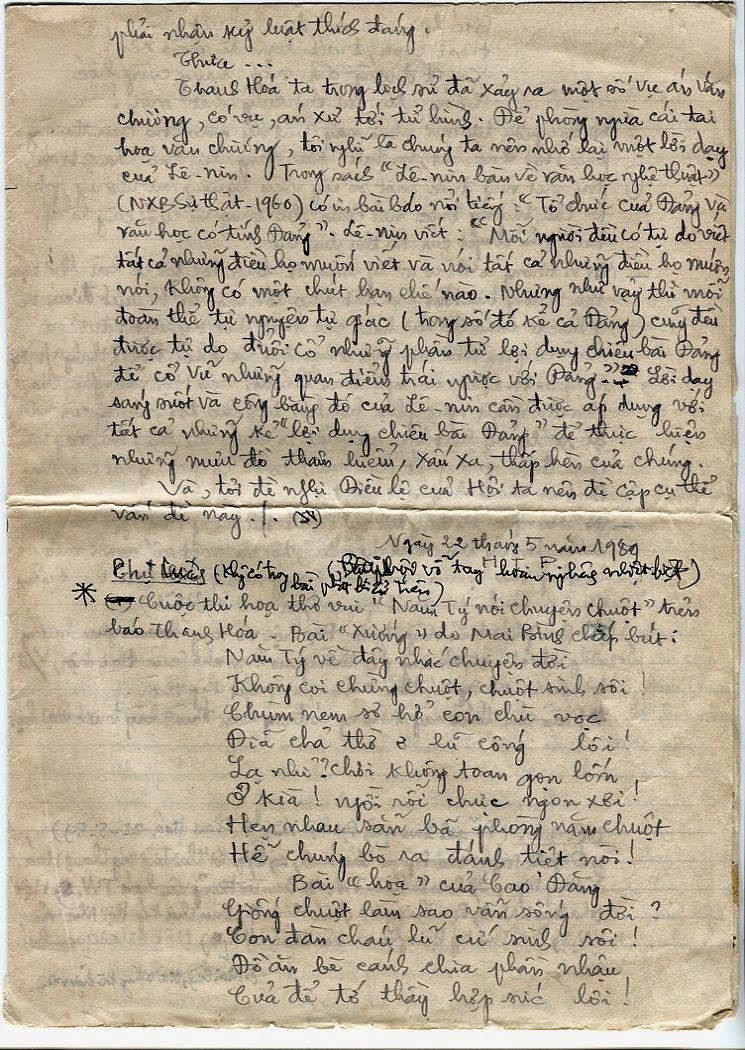 phải nhận kỷ luật thích đáng.
Thưa ...
Thanh Hoá ta trong lịch sử đã xảy ra một số vụ án văn
chương, có vụ, án xử tới tử hình. Để phòng ngừa cái tai
hoạ văn chương, tôi nghĩ là chúng ta nên nhớ lại một lời dạy
của Lê-nin. Trong sách "Lê-nin bàn về văn học nghệ thuật"
(NXB Sự thật-1960) có in bài báo nổi tiếng: "Tổ chức của Đảng và
văn học có tính Đảng". Lê-nin viết: "Mỗi người đều có tự do viết
tất cả những điều họ muốn viết và nói tất cả những điều họ muốn
nói, không có một chút hạn chế nào. Nhưng như vậy thì mỗi
đoàn thể tự nguyện tự giác (trong số đó kể cả Đảng) cũng đều
được tự do đuổi cổ những phần tử lợi dụng chiêu bài Đảng
để cổ vũ những quan điểm trái ngược với Đảng." Lời dạy
sáng suốt và công bằng đó của Lê-nin cần được áp dụng với
tất cả những kẻ "lợi dụng chiêu bài Đảng" để thực hiện
những mưu đồ thâm hiểm, xấu xa, thấp hèn của chúng.
Và, tôi đề nghị Điều lệ của Hội ta nên đề cập cụ thể
vấn đề này./.
Ngày 22 tháng 5 năm 1989
(Không có trong bài phát biểu trên) vỗ tay hoan nghênh nhiệt liệt)
* (1) Cuộc thi hoạ thơ vui "Năm Tỵ nói chuyện chuột" trên
báo Thanh Hóa. Bài "Xướng" do Mai Bình chấp bút:
Năm Tỵ về đây nhắc chuyện đời
Không coi chừng chuột, chuột sinh sôi!
Chùm nem sơ hở con chù vọc
Đĩa chả thờ ơ lũ cống lôi!
Lạ nhỉ? Chồi không toan gọn lỏn,
Ơ kìa! ngồi rỗi chực ngon xơi!
Hẹn nhau sẵn bả phòng năm chuột
Hễ chúng bò ra đánh tiệt nòi!
Bài "hoạ" của Cao Đàng
Giống chuột làm sao vẫn sống đời?
Con đàn cháu lũ cứ sinh sôi!
Đồ ăn bè cánh chia phần nhậu
Của để tớ thầy hợp sức lôi!